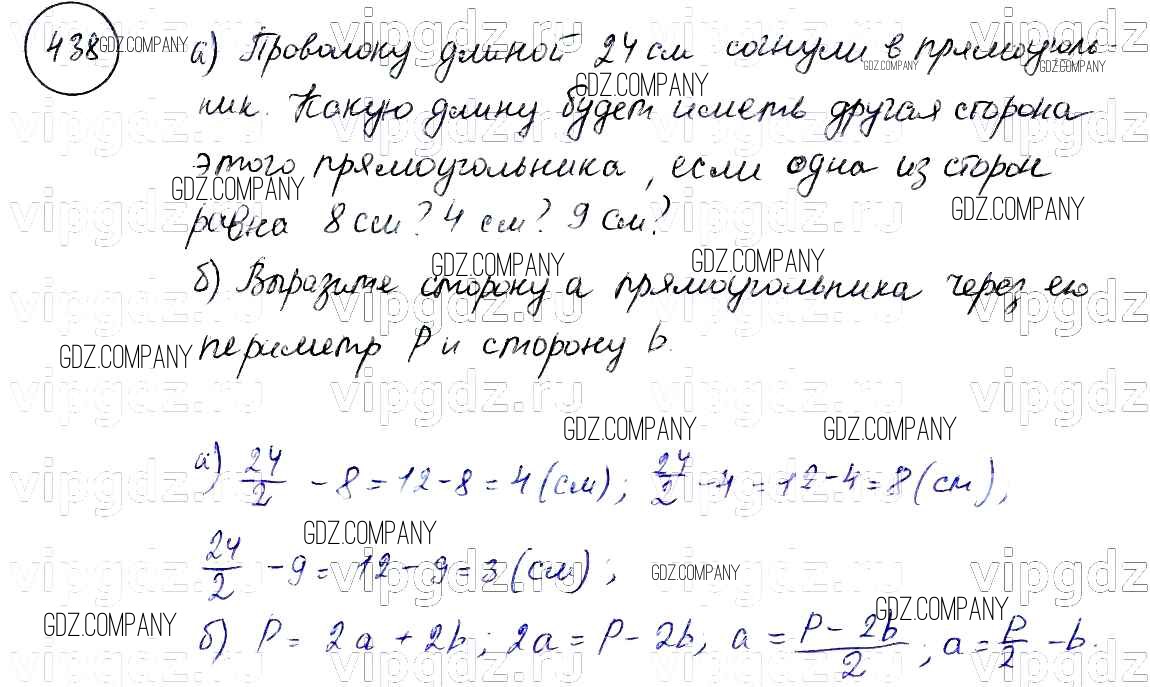 438 а) Проволоку длиной 24 см согнули в прямоуголь-
ник. Какую длину будет иметь другая сторона
этого прямоугольника, если одна из сторон
равна 8 см? 4 см? 9 см?
б) Выразите сторону a прямоугольника через его
периметр P и сторону b.
а) 24/2 - 8 = 12 - 8 = 4 (см); 24/2 - 4 = 12 - 4 = 8 (см);
24/2 - 9 = 12 - 9 = 3 (см);
б) P = 2a + 2b; 2a = P - 2b; a = (P - 2b)/2; a = P/2 - b.
GDZ.COMPANY
vipgdz.ru